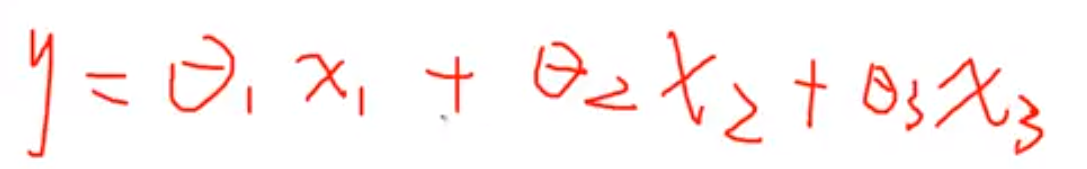 y = θ₁ x₁ + θ₂ x₂ + θ₃ x₃